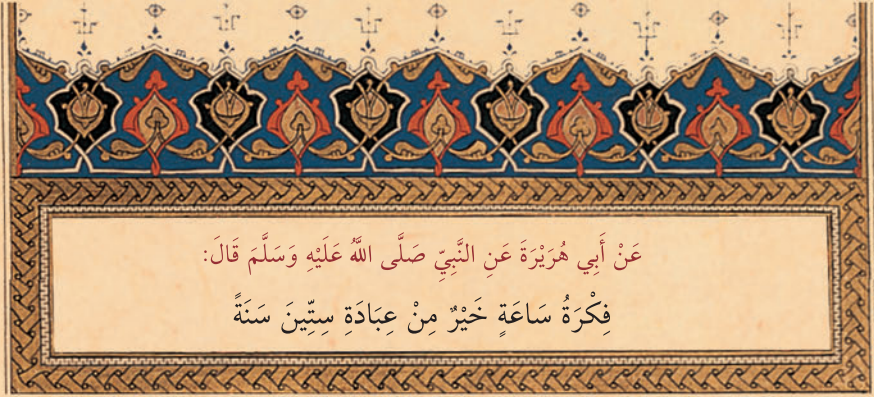 عَنْ أَبِي هُرَيْرَةَ عَنِ النَّبِيِّ صَلَّى اللَّهُ عَلَيْهِ وَسَلَّمَ قَالَ:
فِكْرَةُ سَاعَةٍ خَيْرٌ مِنْ عِبَادَةِ سِتِّينَ سَنَةً